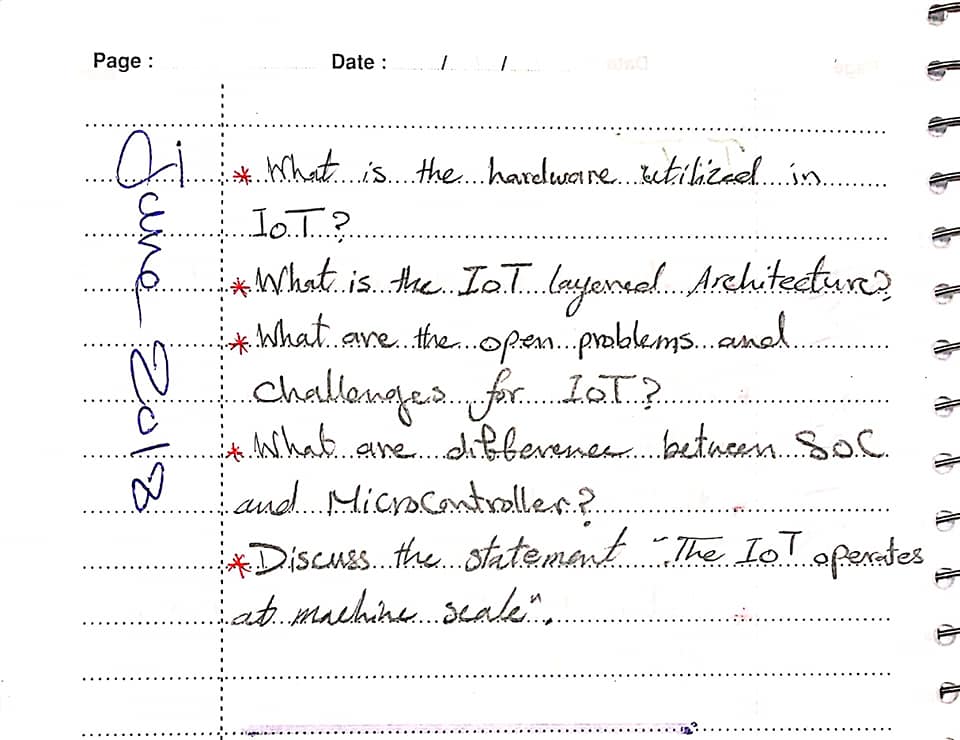 Page :
Date : / /
* What is the hardware utilized in
IoT?
* What is the IoT layered Architecture?
* What are the open problems and
challenges for IoT?
* What are difference between SOC
and MicroController?
* Discuss the statement "The IoT operates
at machine scale".
2018